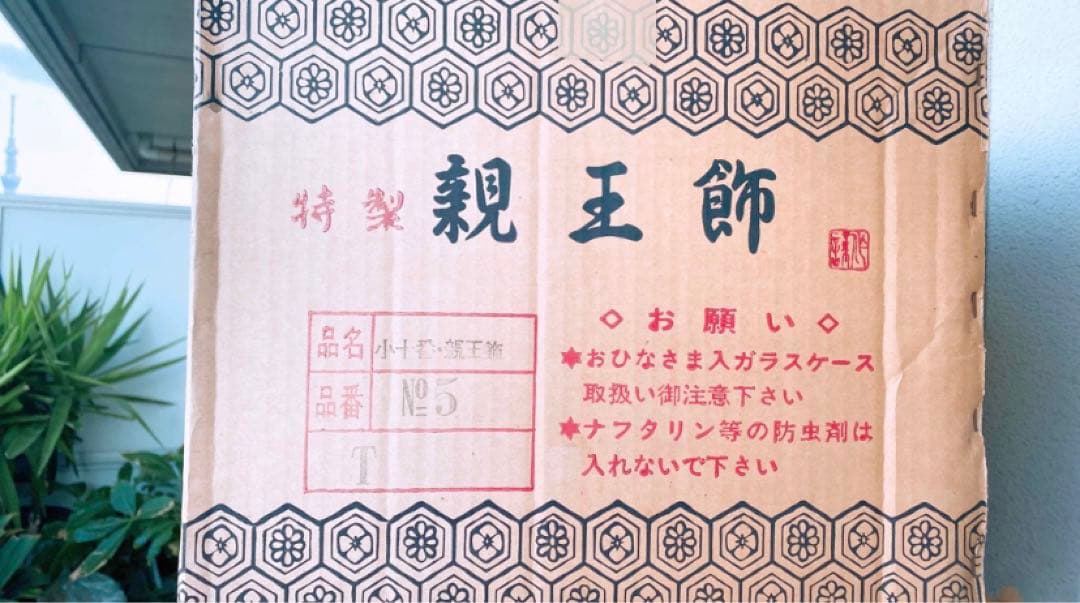 特製 親王飾
品名 小十番・親王飾
品番 №5
T
◇お願い◇
✱おひなさま入ガラスケース
取扱い御注意下さい
✱ナフタリン等の防虫剤は
入れないで下さい